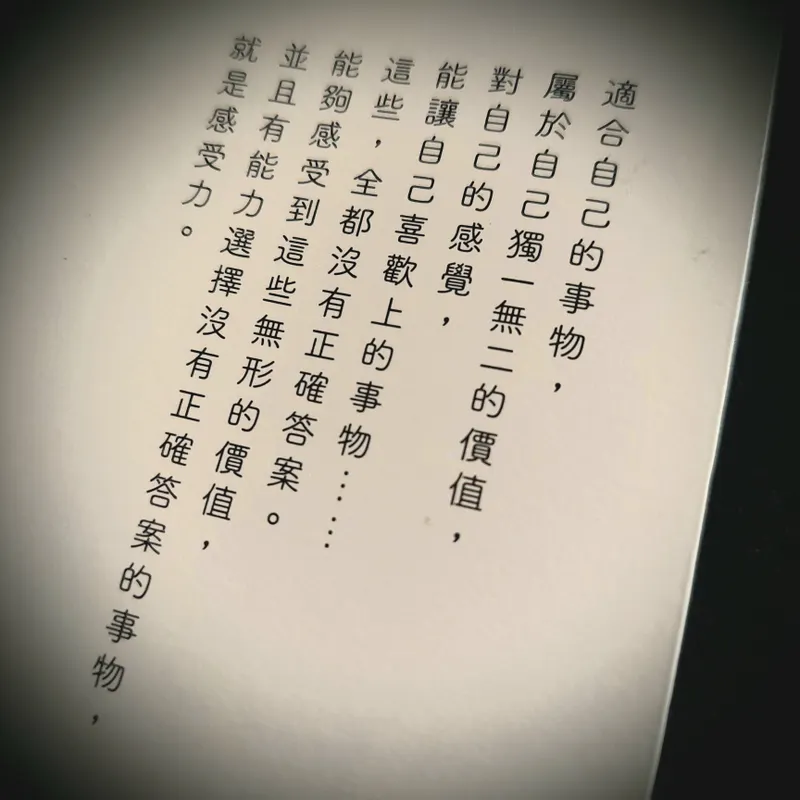 適合自己的事物，
屬於自己獨一無二的價值，
對自己的感覺，
能讓自己喜歡上的事物……
這些，全都沒有正確答案。
能夠感受到這些無形的價值，
並且有能力選擇沒有正確答案的事物，
就是感受力。